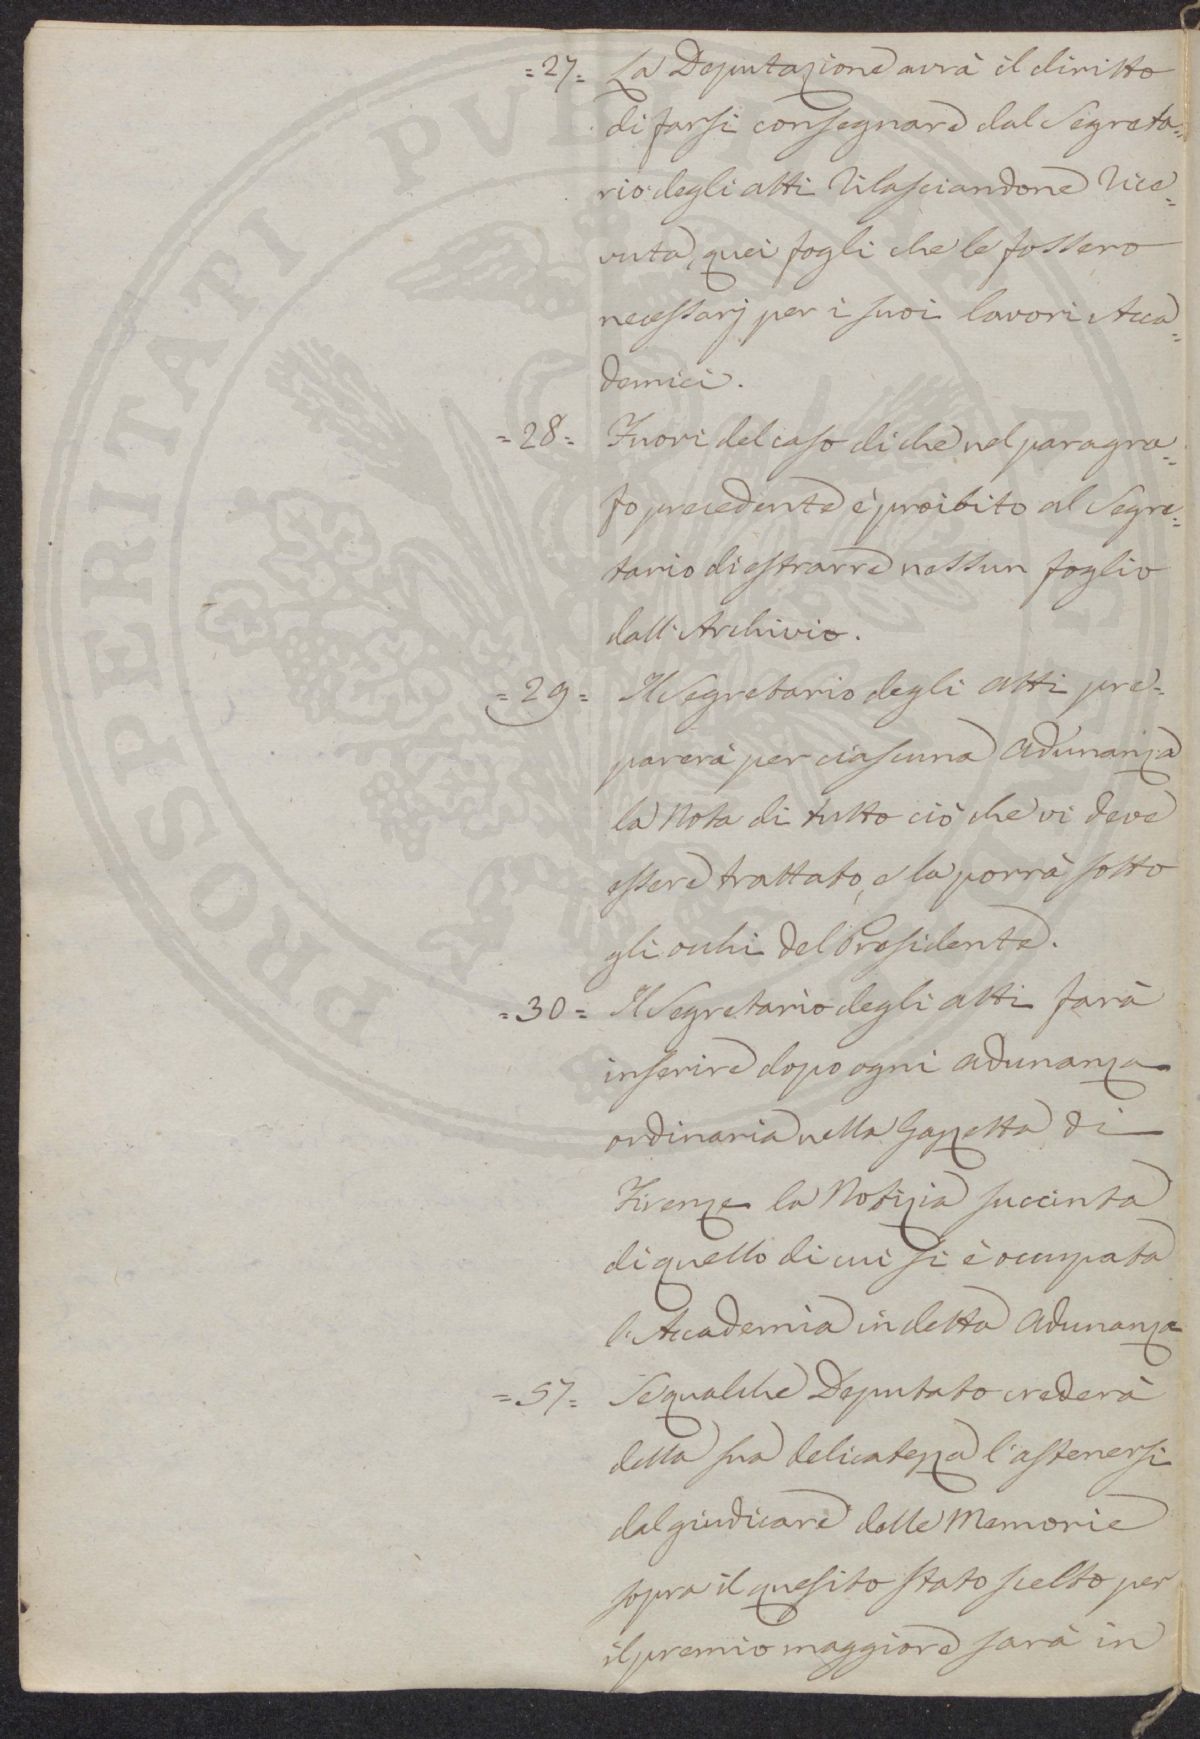 =27= La Deputazione avrà il diritto
di farsi consegnare dal Segreta=
rio degli atti rilasciandone rice=
vuta, quei fogli che le fossero
necessarj per i suoi lavori Acca=
demici.
=28= Fuori del caso di che nel paragra=
fo precedente è proibito al Segre=
tario di estrarre nessun foglio
dall'Archivio.
=29= Il Segretario degli atti pre=
parerà per ciascuna adunanza
la Nota di tutto ciò che vi deve
essere trattato, e la porrà sotto
gli occhi del Presidente.
=30= Il Segretario degli atti farà
inserire dopo ogni adunanza
ordinaria nella Gazzetta di
Firenze la Notizia succinta
di quello di cui si è occupata
l'Accademia in detta adunanza
=57= Se qualche Deputato crederà
della sua delicatezza l'astenersi
dal giudicare delle Memorie
sopra il quesito stato scelto per
il premio maggiore sarà in
PROSPERITATI PUBLICAE